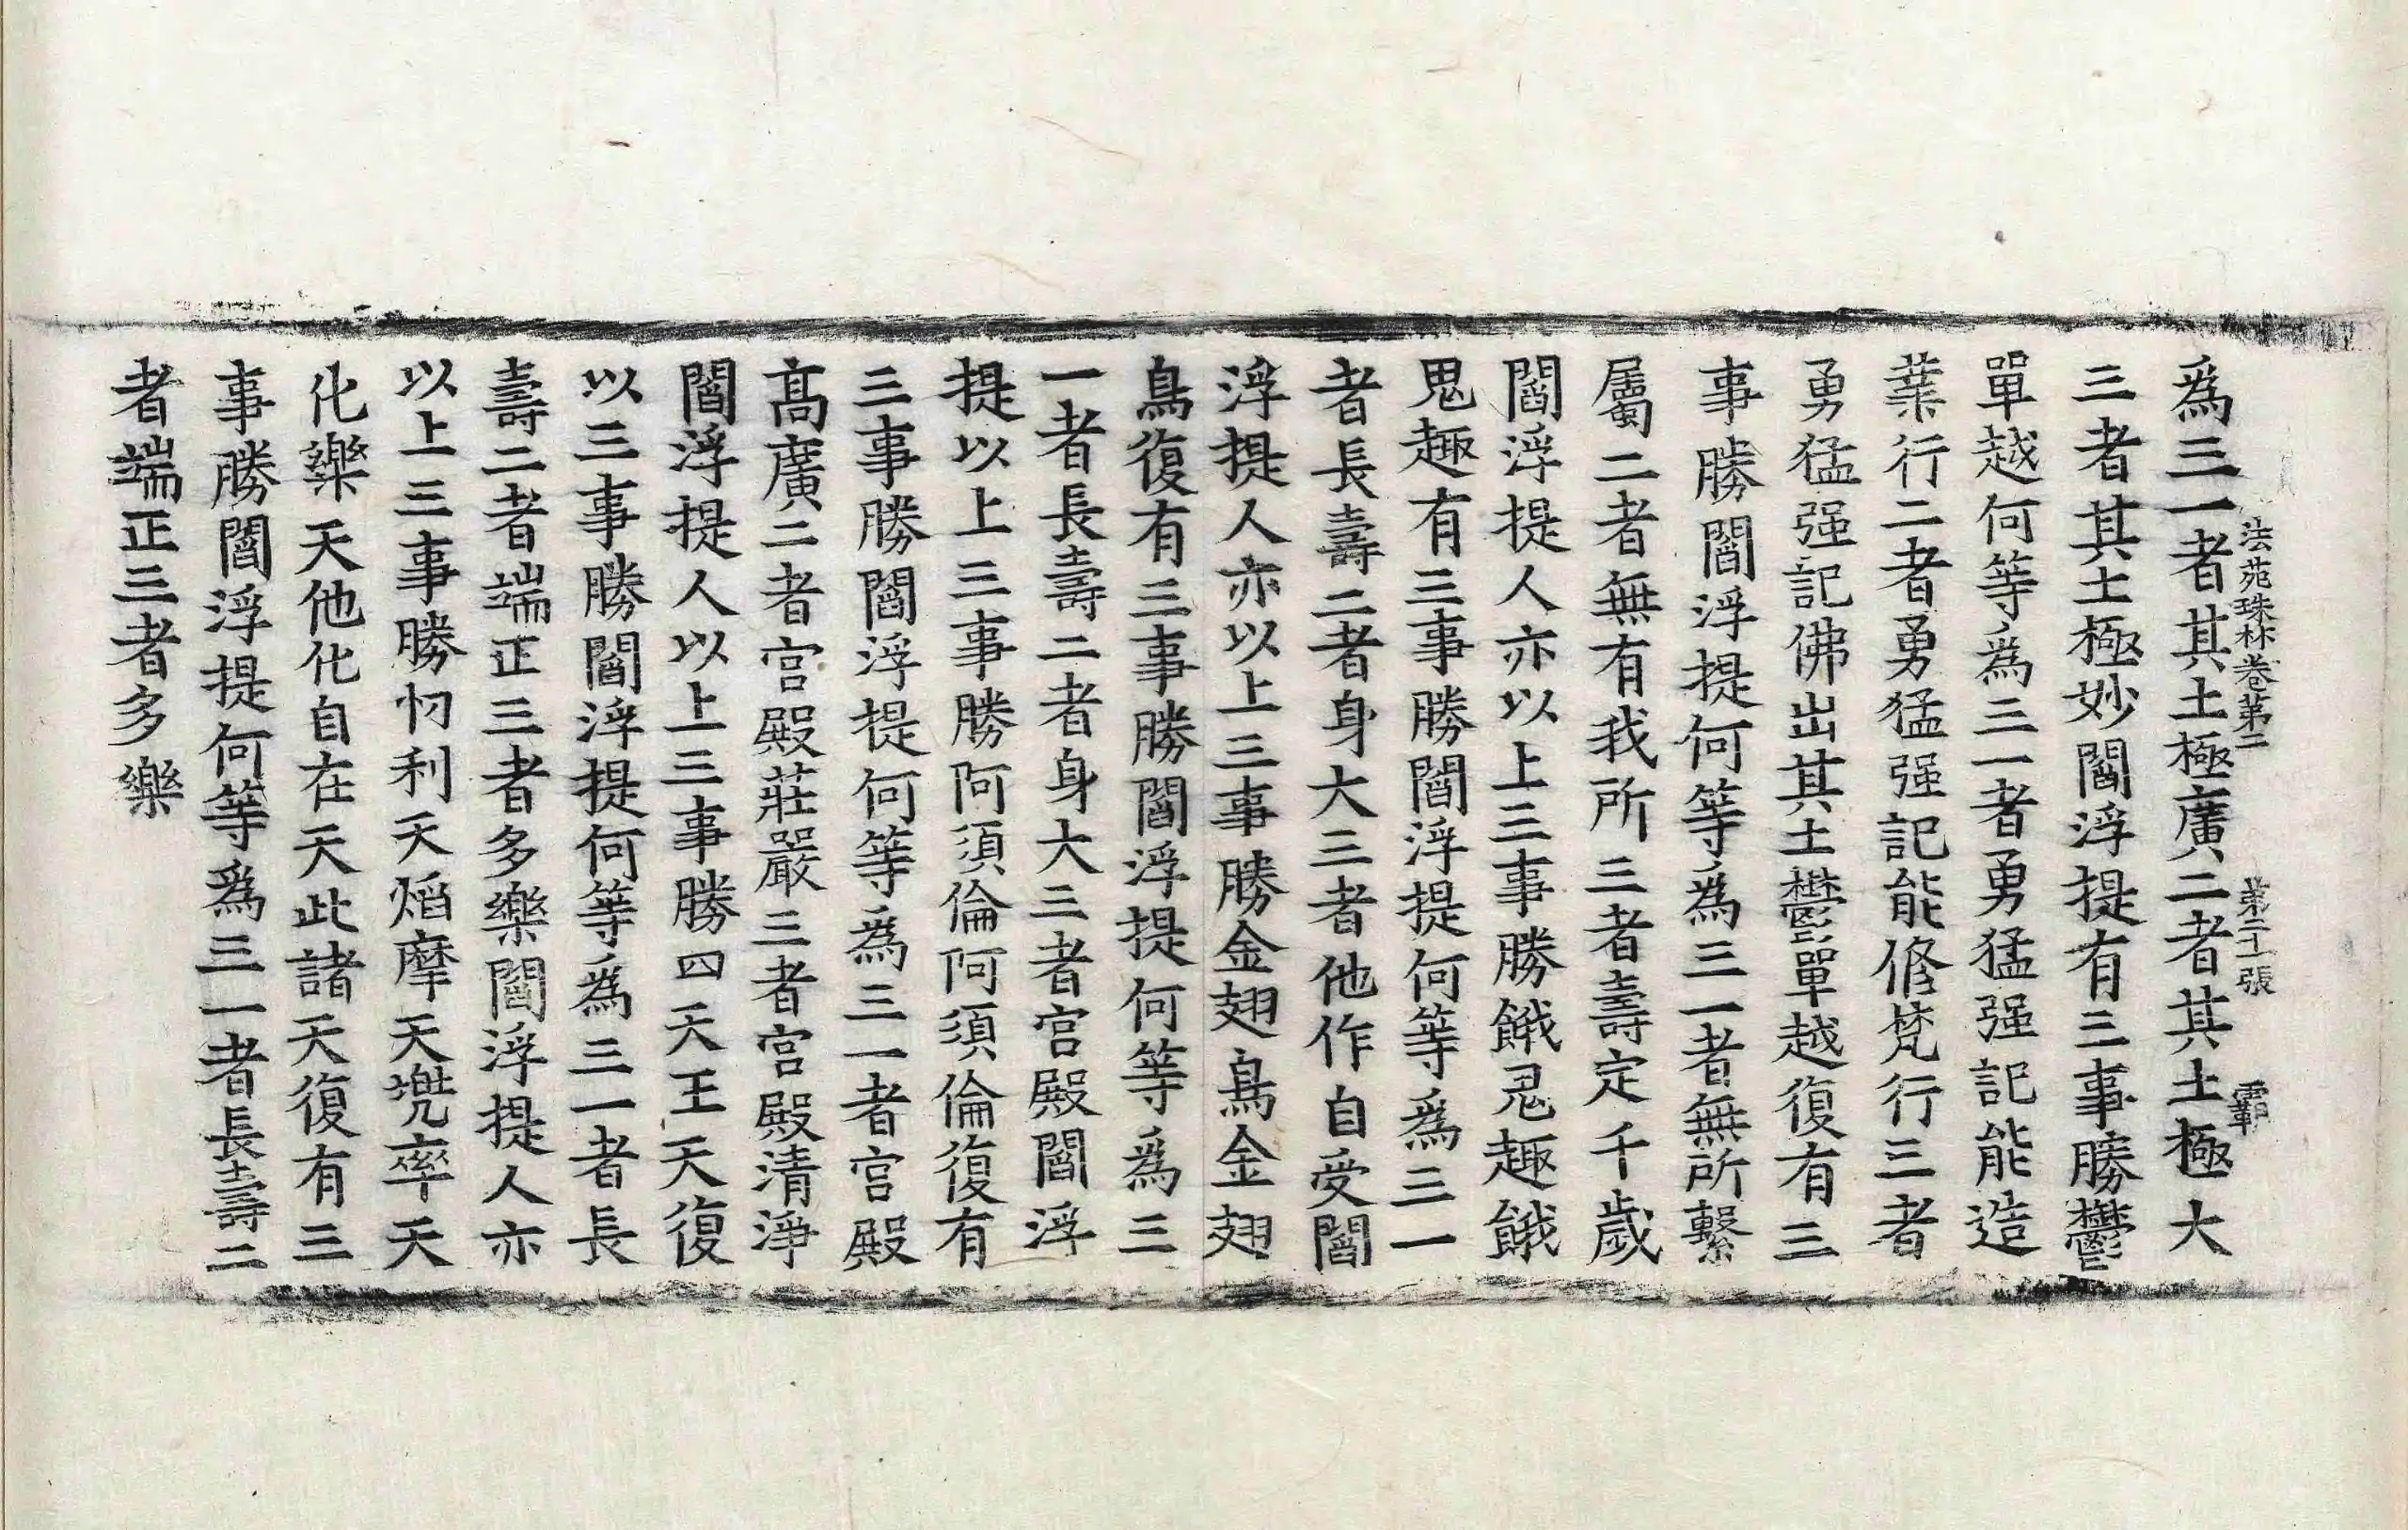 爲三一者其土極廣二者其土極大
法苑珠林卷第二 第二十一張 霸
三者其土極妙閻浮提有三事勝欝
單越何等爲三一者勇猛强記能造
業行二者勇猛强記能修梵行三者
勇猛强記佛出其土欝單越復有三
事勝閻浮提何等爲三一者無所繫
屬二者無有我所三者壽定千歲
閻浮提人亦以上三事勝餓鬼趣餓
鬼趣有三事勝閻浮提何等爲三一
者長壽二者身大三者他作自受閻
浮提人亦以上三事勝金翅鳥金翅
鳥復有三事勝閻浮提何等爲三
一者長壽二者身大三者宮殿閻浮
提以上三事勝阿須倫阿須倫復有
三事勝閻浮提何等爲三一者宮殿
髙廣二者宮殿莊嚴三者宮殿清淨
閻浮提人以上三事勝四天王天復
以三事勝閻浮提何等爲三一者長
壽二者端正三者多樂閻浮提人亦
以上三事勝忉利天焰摩天兠率天
化樂天他化自在天此諸天復有三
事勝閻浮提何等爲三一者長壽二
者端正三者多樂